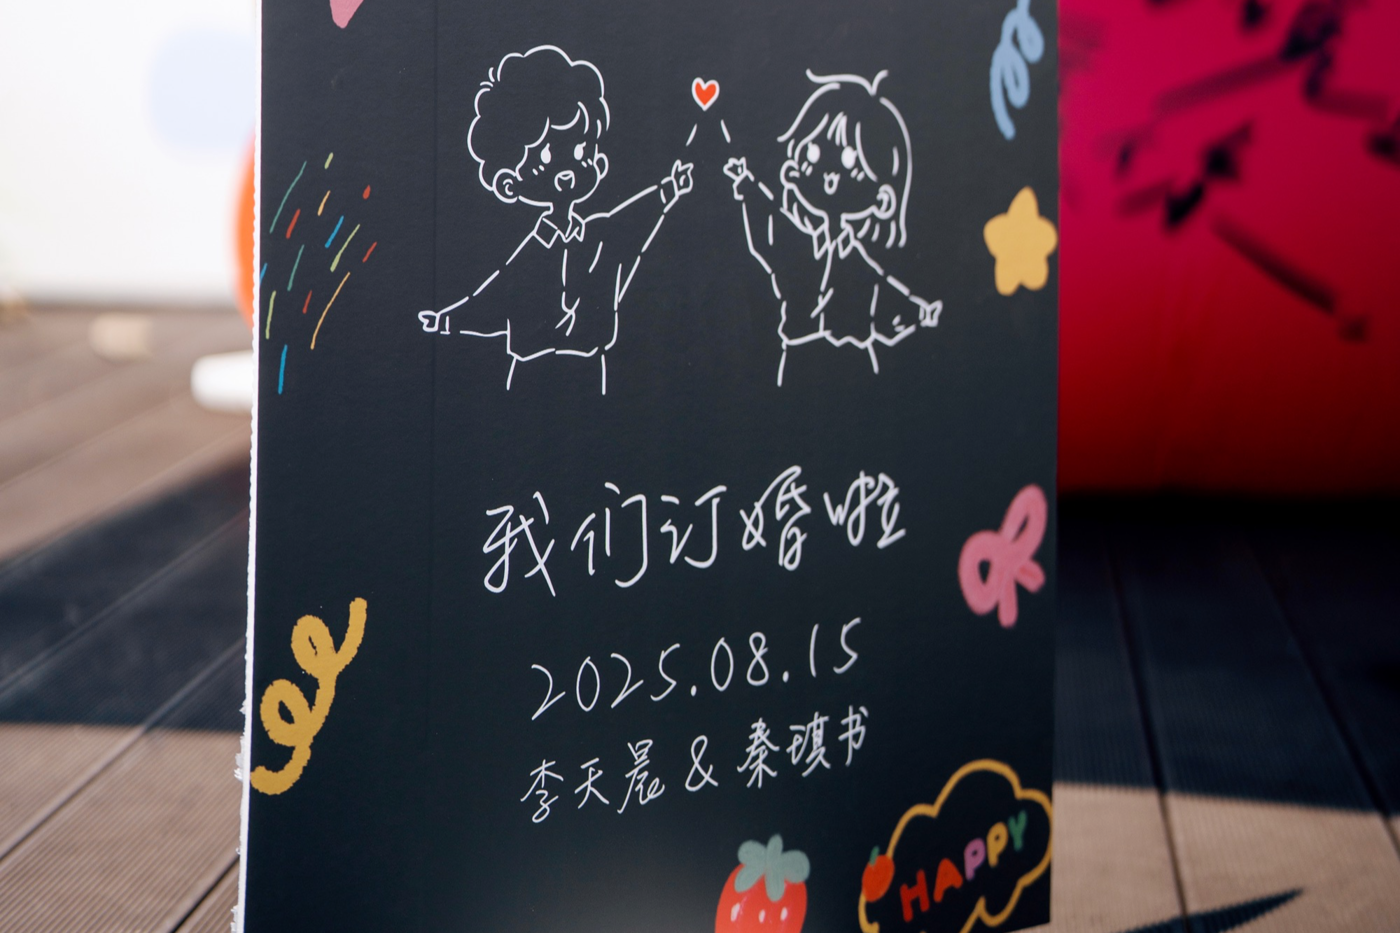 我们订婚啦
2025.08.15
李天晨 & 秦琪书
HAPPY